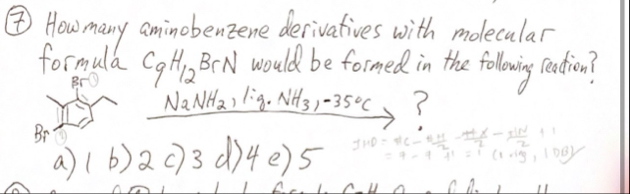 ⑦ How many aminobenzene derivatives with molecular
formula C9H12BrN would be formed in the following reaction?
Br ①
NaNH2, liq. NH3, -35°C
?
Br
a) 1 b) 2 c) 3 d) 4 e) 5